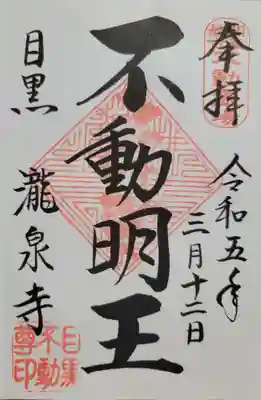 奉拝
令和五年
三月十二日
不動明王
目黒
瀧泉寺
目黒
不動
尊印